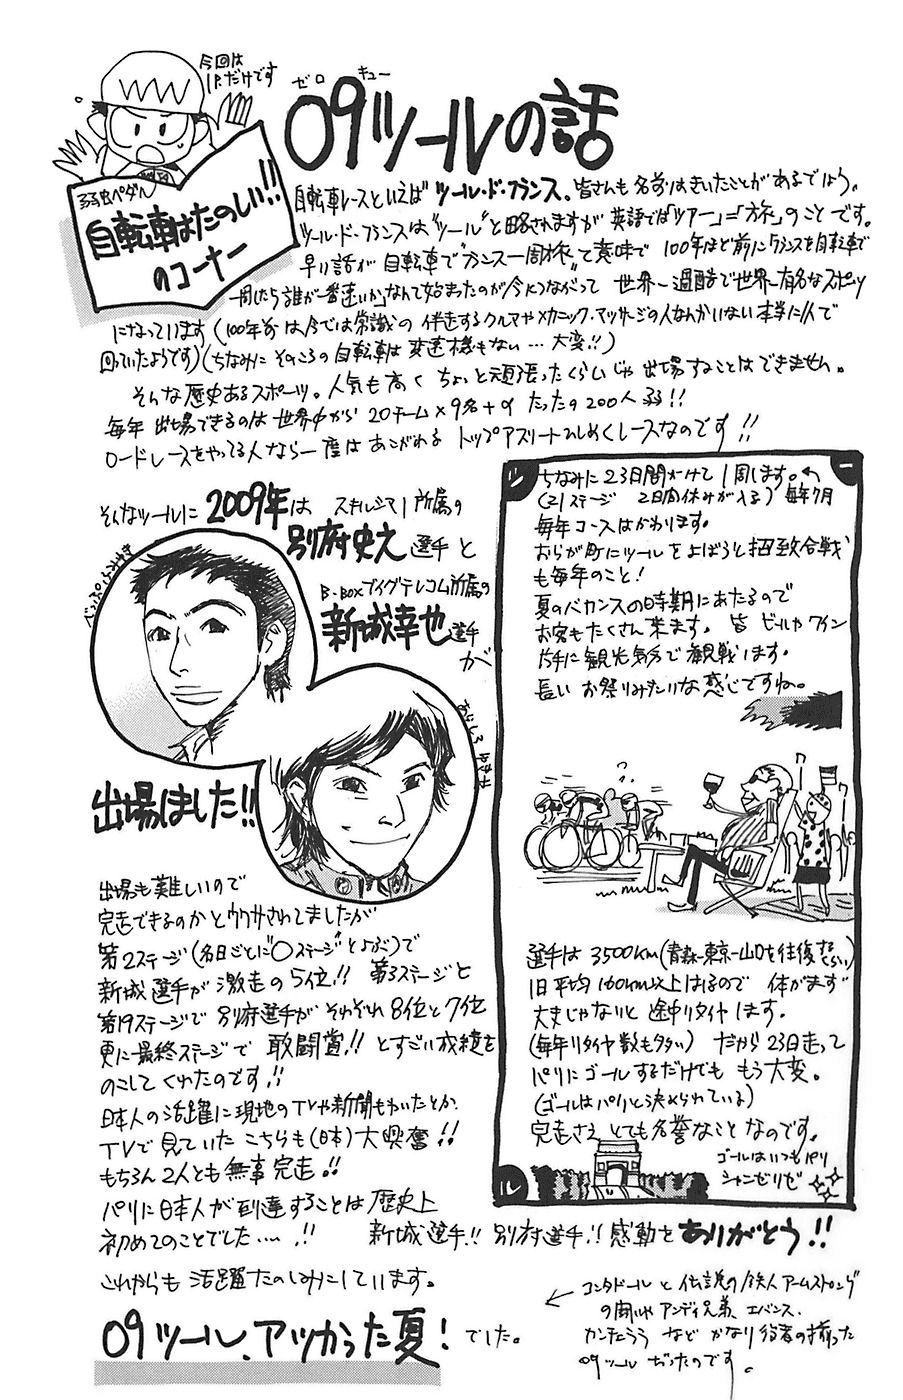 今回は
1P.だけです
弱虫ペダル
自転車はたのしい!!
のコーナー
ゼロ キュー
09ツールの話
自転車レースといえばツール・ド・フランス、皆さんも名前はきいたことがあるでしょう。
ツール・ド・フランスは"ツール"と略されますが英語では「ツアー」=「旅」のことです。
早い話が自転車で"フランス一周旅"って意味で 100年ほど前にフランスを自転車で
一周したら誰が一番速いか」なんて始まったのが今につながって 世界一過酷で世界一有名なスポーツ
になっています(100年前は今では常識の 伴走するクルマやメカニック、マッサージの人なんかいない本当に1人で
回っていたようです)(ちなみに そのころの自転車は 変速機もない…大変!!)
そんな歴史あるスポーツ。人気も高く ちょっと頑張ったくらいじゃ 出場することはできません。
毎年 出場できるのは世界中から 20チーム×9名+α たったの200人弱!!
ロードレースをやってる人なら一度はあこがれる トップアスリートひしめくレースなのです!!
そんなツールに 2009年は スキル・シマノ所属の
別府史之選手と
べっぷ・ふみゆき
B・boxブイグテレコム所属の
新城幸也選手
が
あらしろ ゆきや
出場しました!!
出場も難しいので
完走できるのかとウワサされてましたが
第2ステージ(各日ごとに"○ステージ"とよぶ)で
新城選手が激走の5位!! 第3ステージと
第19ステージで 別府選手が それぞれ8位と7位
更に最終ステージで 敢闘賞!! とすごい成績を
のこしてくれたのです!!
日本人の活躍に現地のTVや新聞もわいたとか、
TVで見ていた こちらも(日本)大興奮!!
もちろん2人とも無事完走!!
パリに日本人が到達することは歴史上
初めてのことでした…。!!
新城選手!! 別府選手!! 感動をありがとう!!
これからも 活躍たのしみにしています。
09ツール、アツかった夏! でした。
ツ ー ル
ちなみに23日間かけて1周します。
(21ステージ 2日間休みが入る) 毎年7月
毎年コースはかわります。
おらが町にツールをよぼうと招致合戦
も毎年のこと!
夏のバカンスの時期にあたるので
お客もたくさん来ます。皆 ビールやワイン
片手に観光気分で観戦します。
長い お祭りみたいな感じですね。
選手は 3500km(青森–東京–山口を往復するくらい)
1日平均160km以上はしるので 体がまず
丈夫じゃないと 途中リタイヤします。
(毎年リタイヤ数も多い) だから 23日走って
パリにゴールするだけでも もう大変。
(ゴールはパリと決められている)
完走さえ とても名誉なことなのです。
ゴールはいつもパリ
シャンゼリゼ
コンタドールと伝説の鉄人アームストロング
の闘いや アンディ兄弟、エバンス、
カンチェラうう など かなり役者の揃った
09ツール だったのです。